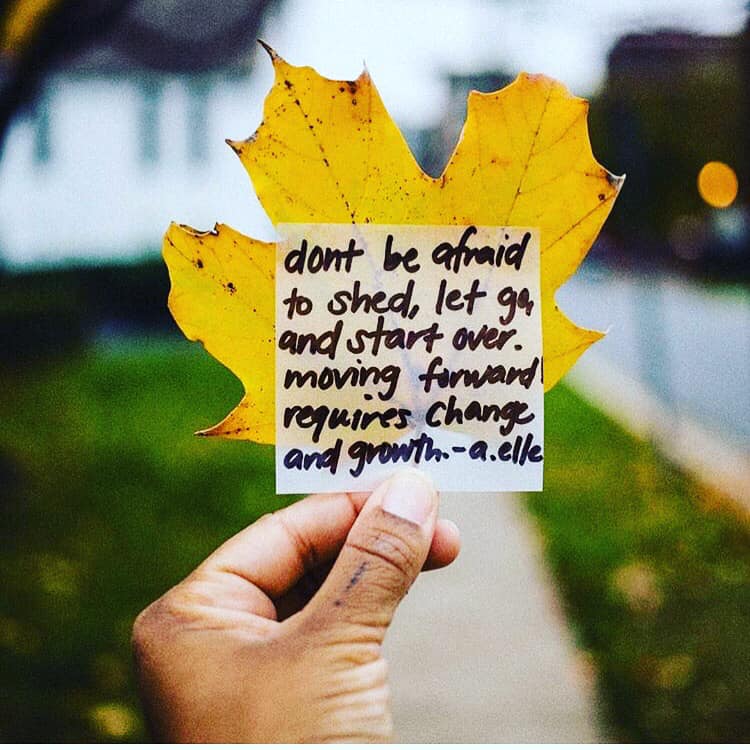 dont be afraid
to shed, let go,
and start over.
moving forward
requires change
and growth.-a.elle